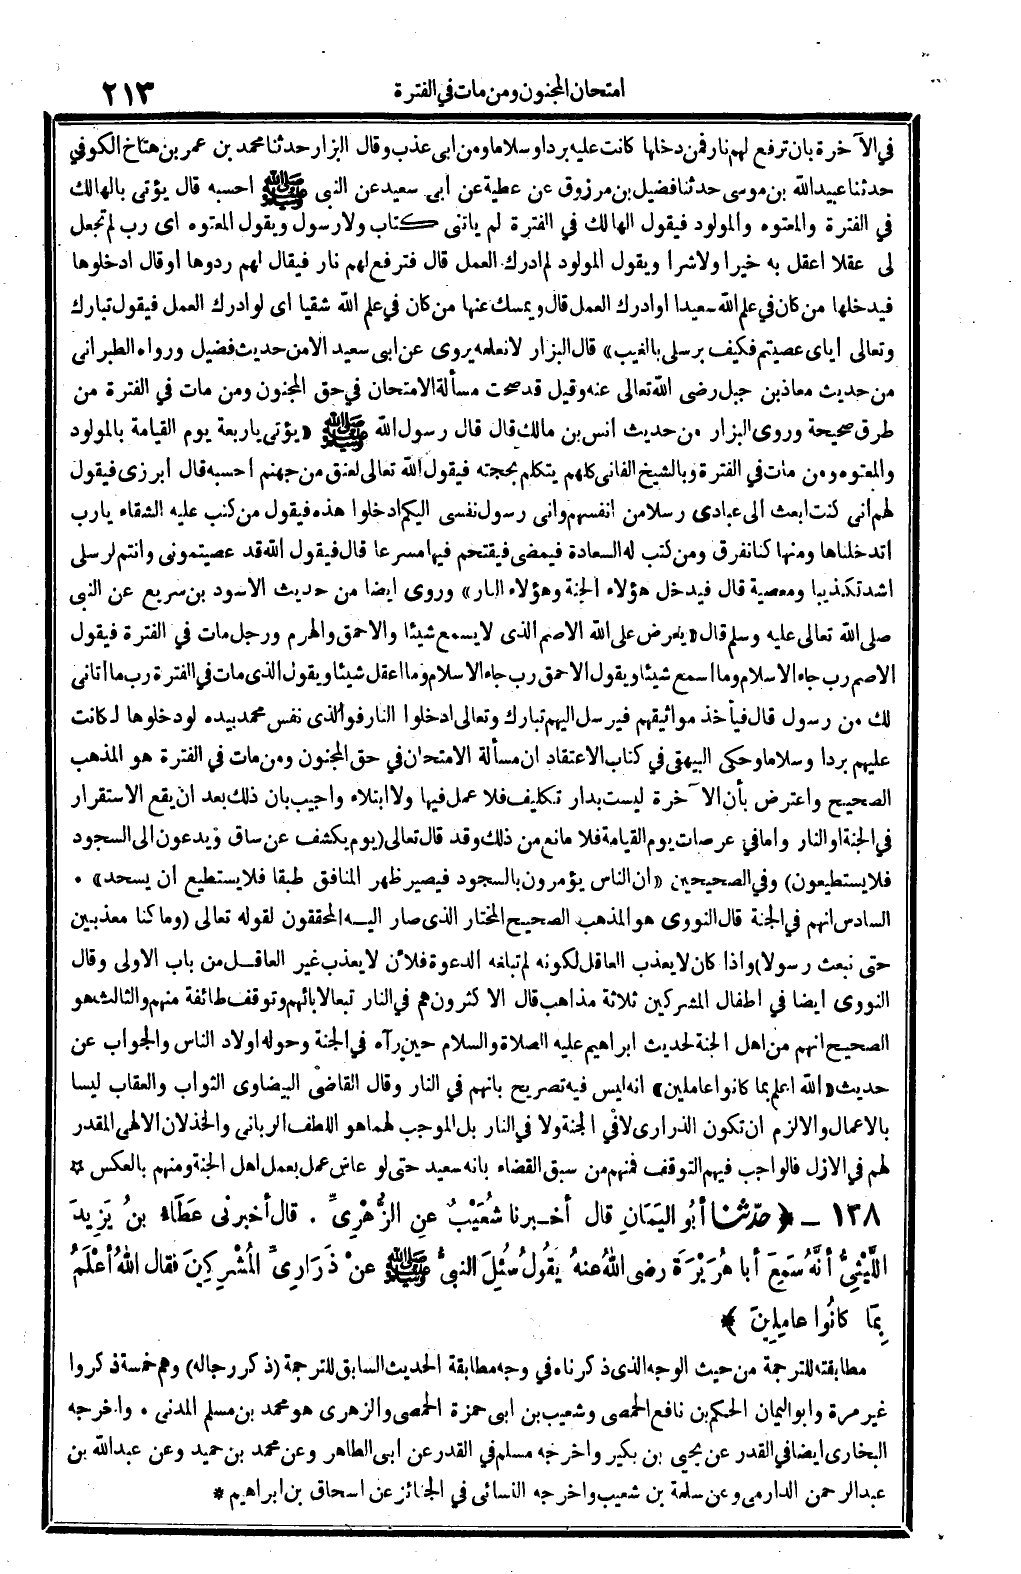 امتحان المجنون ومن مات في الفترة
٢١٣
في الآخرة بان ترفع لهم نار فمن دخلها كانت عليه بردا وسلاما ومن ابى عذب وقال البزار حدثنا محمد بن عمر بن هناخ الكوفي
حدثنا عبيد الله بن موسى حدثنا فضيل بن مرزوق عن عطية عن ابى سعيد عن النبى ﷺ احسبه قال يؤتى بالهالك
في الفترة والمعتوه والمولود فيقول الهالك في الفترة لم ياتنى كتاب ولا رسول ويقول المعتوه اى رب لم تجعل
لى عقلا اعقل به خيرا ولا شرا ويقول المولود لم ادرك العمل قال فترفع لهم نار فيقال لهم ردوها او قال ادخلوها
فيدخلها من كان في علم الله سعيدا او ادرك العمل قال ويمسك عنها من كان في علم الله شقيا اى لو ادرك العمل فيقول تبارك
وتعالى اياى عصيتم فكيف برسلى بالغيب» قال البزار لا نعلمه يروى عن ابى سعيد الا من حديث فضيل ورواه الطبرانى
من حديث معاذ بن جبل رضى الله تعالى عنه وقيل قد صحت مسألة الامتحان في حق المجنون ومن مات في الفترة من
طرق صحيحة وروى البزار من حديث أنس بن مالك قال قال رسول الله ﷺ «يؤتى باربعة يوم القيامة بالمولود
والمعتوه ومن مات في الفترة وبالشيخ الفانى كلهم يتكلم بحجته فيقول الله تعالى لعنق من جهنم أحسبه قال ابرزى فيقول
لهم انى كنت ابعث الى عبادى رسلا من انفسهم وانى رسول نفسى اليكم ادخلوا هذه فيقول من كتب عليه الشقاء يارب
اتدخلناها ومنها كنا نفرق ومن كتب له السعادة فيمضى فيقتحم فيها مسرعا قال فيقول الله قد عصيتمونى وانتم لرسلى
اشد تكذيبا ومعصية قال فيدخل هؤلاء الجنة وهؤلاء النار» وروى ايضا من حديث الاسود بن سريع عن النبى
صلى الله تعالى عليه وسلم قال «يعرض على الله الاصم الذى لا يسمع شيئا والاحمق والهرم ورجل مات في الفترة فيقول
الاصم رب جاء الاسلام وما اسمع شيئا ويقول الاحمق رب جاء الاسلام وما اعقل شيئا ويقول الذى مات في الفترة رب ما اتانى
لك من رسول قال فيأخذ مواثيقهم فيرسل اليهم تبارك وتعالى ادخلوا النار فوالذى نفس محمد بيده لو دخلوها لكانت
عليهم بردا وسلاما وحكى البيهقى في كتاب الاعتقاد ان مسألة الامتحان في حق المجنون ومن مات في الفترة هو المذهب
الصحيح واعترض بأن الآخرة ليست بدار تكليف فلا عمل فيها ولا ابتلاء واجيب بان ذلك بعد ان يقع الاستقرار
في الجنة او النار وامافي عرصات يوم القيامة فلا مانع من ذلك وقد قال تعالى (يوم يكشف عن ساق ويدعون الى السجود
فلا يستطيعون) وفي الصحيحين «ان الناس يؤمرون بالسجود فيصير ظهر المنافق طبقا فلا يستطيع ان يسجد» .
السادس انهم في الجنة قال النووى هو المذهب الصحيح المختار الذى صار اليه المحققون لقوله تعالى (وما كنا معذبين
حتى نبعث رسولا) واذا كان لا يعذب العاقل لكونه لم تبلغه الدعوة فلأن لا يعذب غير العاقل من باب الاولى وقال
النووى ايضا في اطفال المشركين ثلاثة مذاهب قال الاكثرون هم في النار تبعا لابائهم وتوقف طائفة منهم والثالث هو
الصحيح انهم من اهل الجنة لحديث ابراهيم عليه الصلاة والسلام حين رآه في الجنة وحوله اولاد الناس والجواب عن
حديث «الله اعلم بما كانوا عاملين» انه ليس فيه تصريح بانهم في النار وقال القاضى البيضاوى الثواب والعقاب ليسا
بالاعمال والا لزم ان تكون الذرارى لا في الجنة ولا في النار بل الموجب لهما هو اللطف الربانى والخذلان الالهى المقدر
لهم في الازل فالواجب فيهم التوقف فمنهم من سبق القضاء بانه سعيد حتى لو عاش عمل بعمل اهل الجنة ومنهم بالعكس *
١٣٨ ـ ﴿ حدّثنا أبُو اليَمَانِ قال أخـبرنا شُعَيْبٌ عنِ الزُّهْرِىِّ . قال أخبرنى عَطَاءُ بنُ يَزِيدَ
اللَّيْثِىُّ أنَّهُ سَمِعَ أبا هُرَيْرَةَ رضى اللهُ عنهُ يَقُولُ سُئِلَ النبىُّ ﷺ عنْ ذَرَارِىِّ المُشْرِكِينَ فقال اللهُ أعْلَمُ
بِمَا كانُوا عامِلِينَ ﴾
مطابقته للترجمة من حيث الوجه الذى ذكرناه في وجه مطابقة الحديث السابق للترجمة (ذكر رجاله) وهم خمسة ذكروا
غير مرة وابو اليمان الحكم بن نافع الحمصى وشعيب بن ابى حمزة الحمصى والزهرى هو محمد بن مسلم المدنى . واخرجه
البخارى ايضا في القدر عن يحيى بن بكير واخرجه مسلم في القدر عن ابى الطاهر وعن محمد بن حميد وعن عبدالله بن
عبدالرحمن الدارمى وعن سلمة بن شعيب واخرجه النسائى في الجنائز عن اسحاق بن ابراهيم *